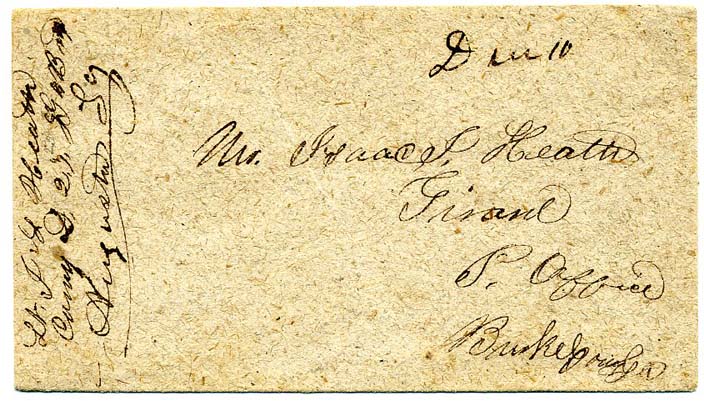 Due 10
Mr. Isaac S. Heath
Girard
P. Office
Burke County Ga
Lt. J. H. Heath
Comp D, 27 Ga Bn
Augusta Ga